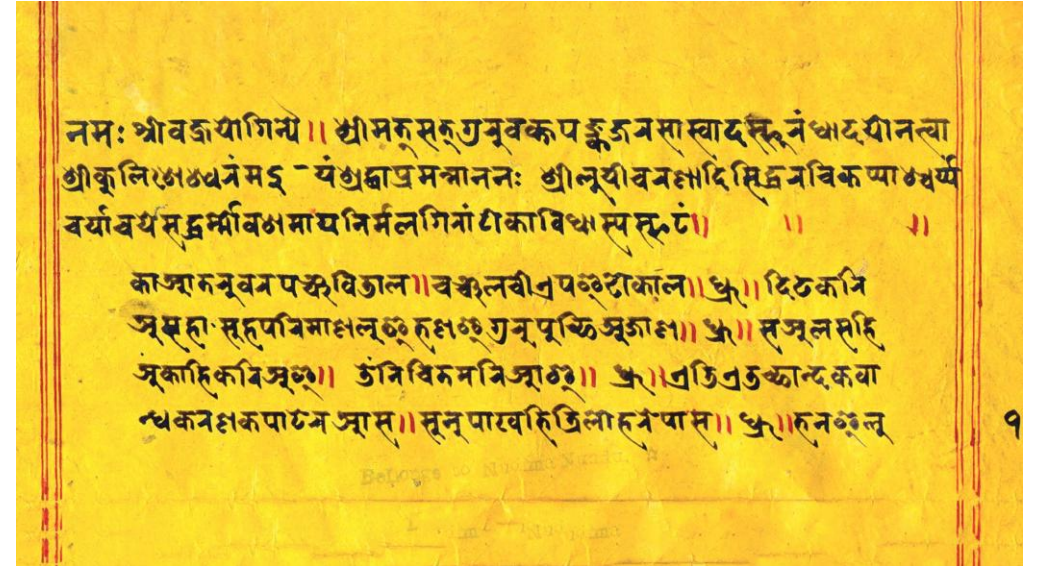 नमः श्रीवज्रयोगिन्यै॥ श्रीमत्सत्गुरुवक्त्रपङ्कजरसास्वादस्फुरंधादयोनत्वा
श्रीकुलिशेश्वरंमइ - यंश्रद्धाप्रमन्माननः श्रीलुयीचरणादिसिद्धरचिकप्याश्चर्य्य
चर्याचयेसद्वर्त्मावगमायनिर्मलगिरांटीकाविधास्यस्फुटं॥ ॥ ॥
काआतरुवरपञ्चविडाल॥चञ्चलचीएपइठोकाल॥ध्रु॥दिटकरि
अमहासुहपरिमाणलुइभणइगुरुपुच्छिअजाण॥ध्रु॥सअलसहि
अकाहिकरिअइ॥ तेंनिचितमरिआइ॥ ध्रु॥एडिएडच्छान्दकवा
न्धकरणकपाटेरआस॥सुनुपाखभिडिलाहुरेपास॥ध्रु॥भनइलु
१
Belongs to